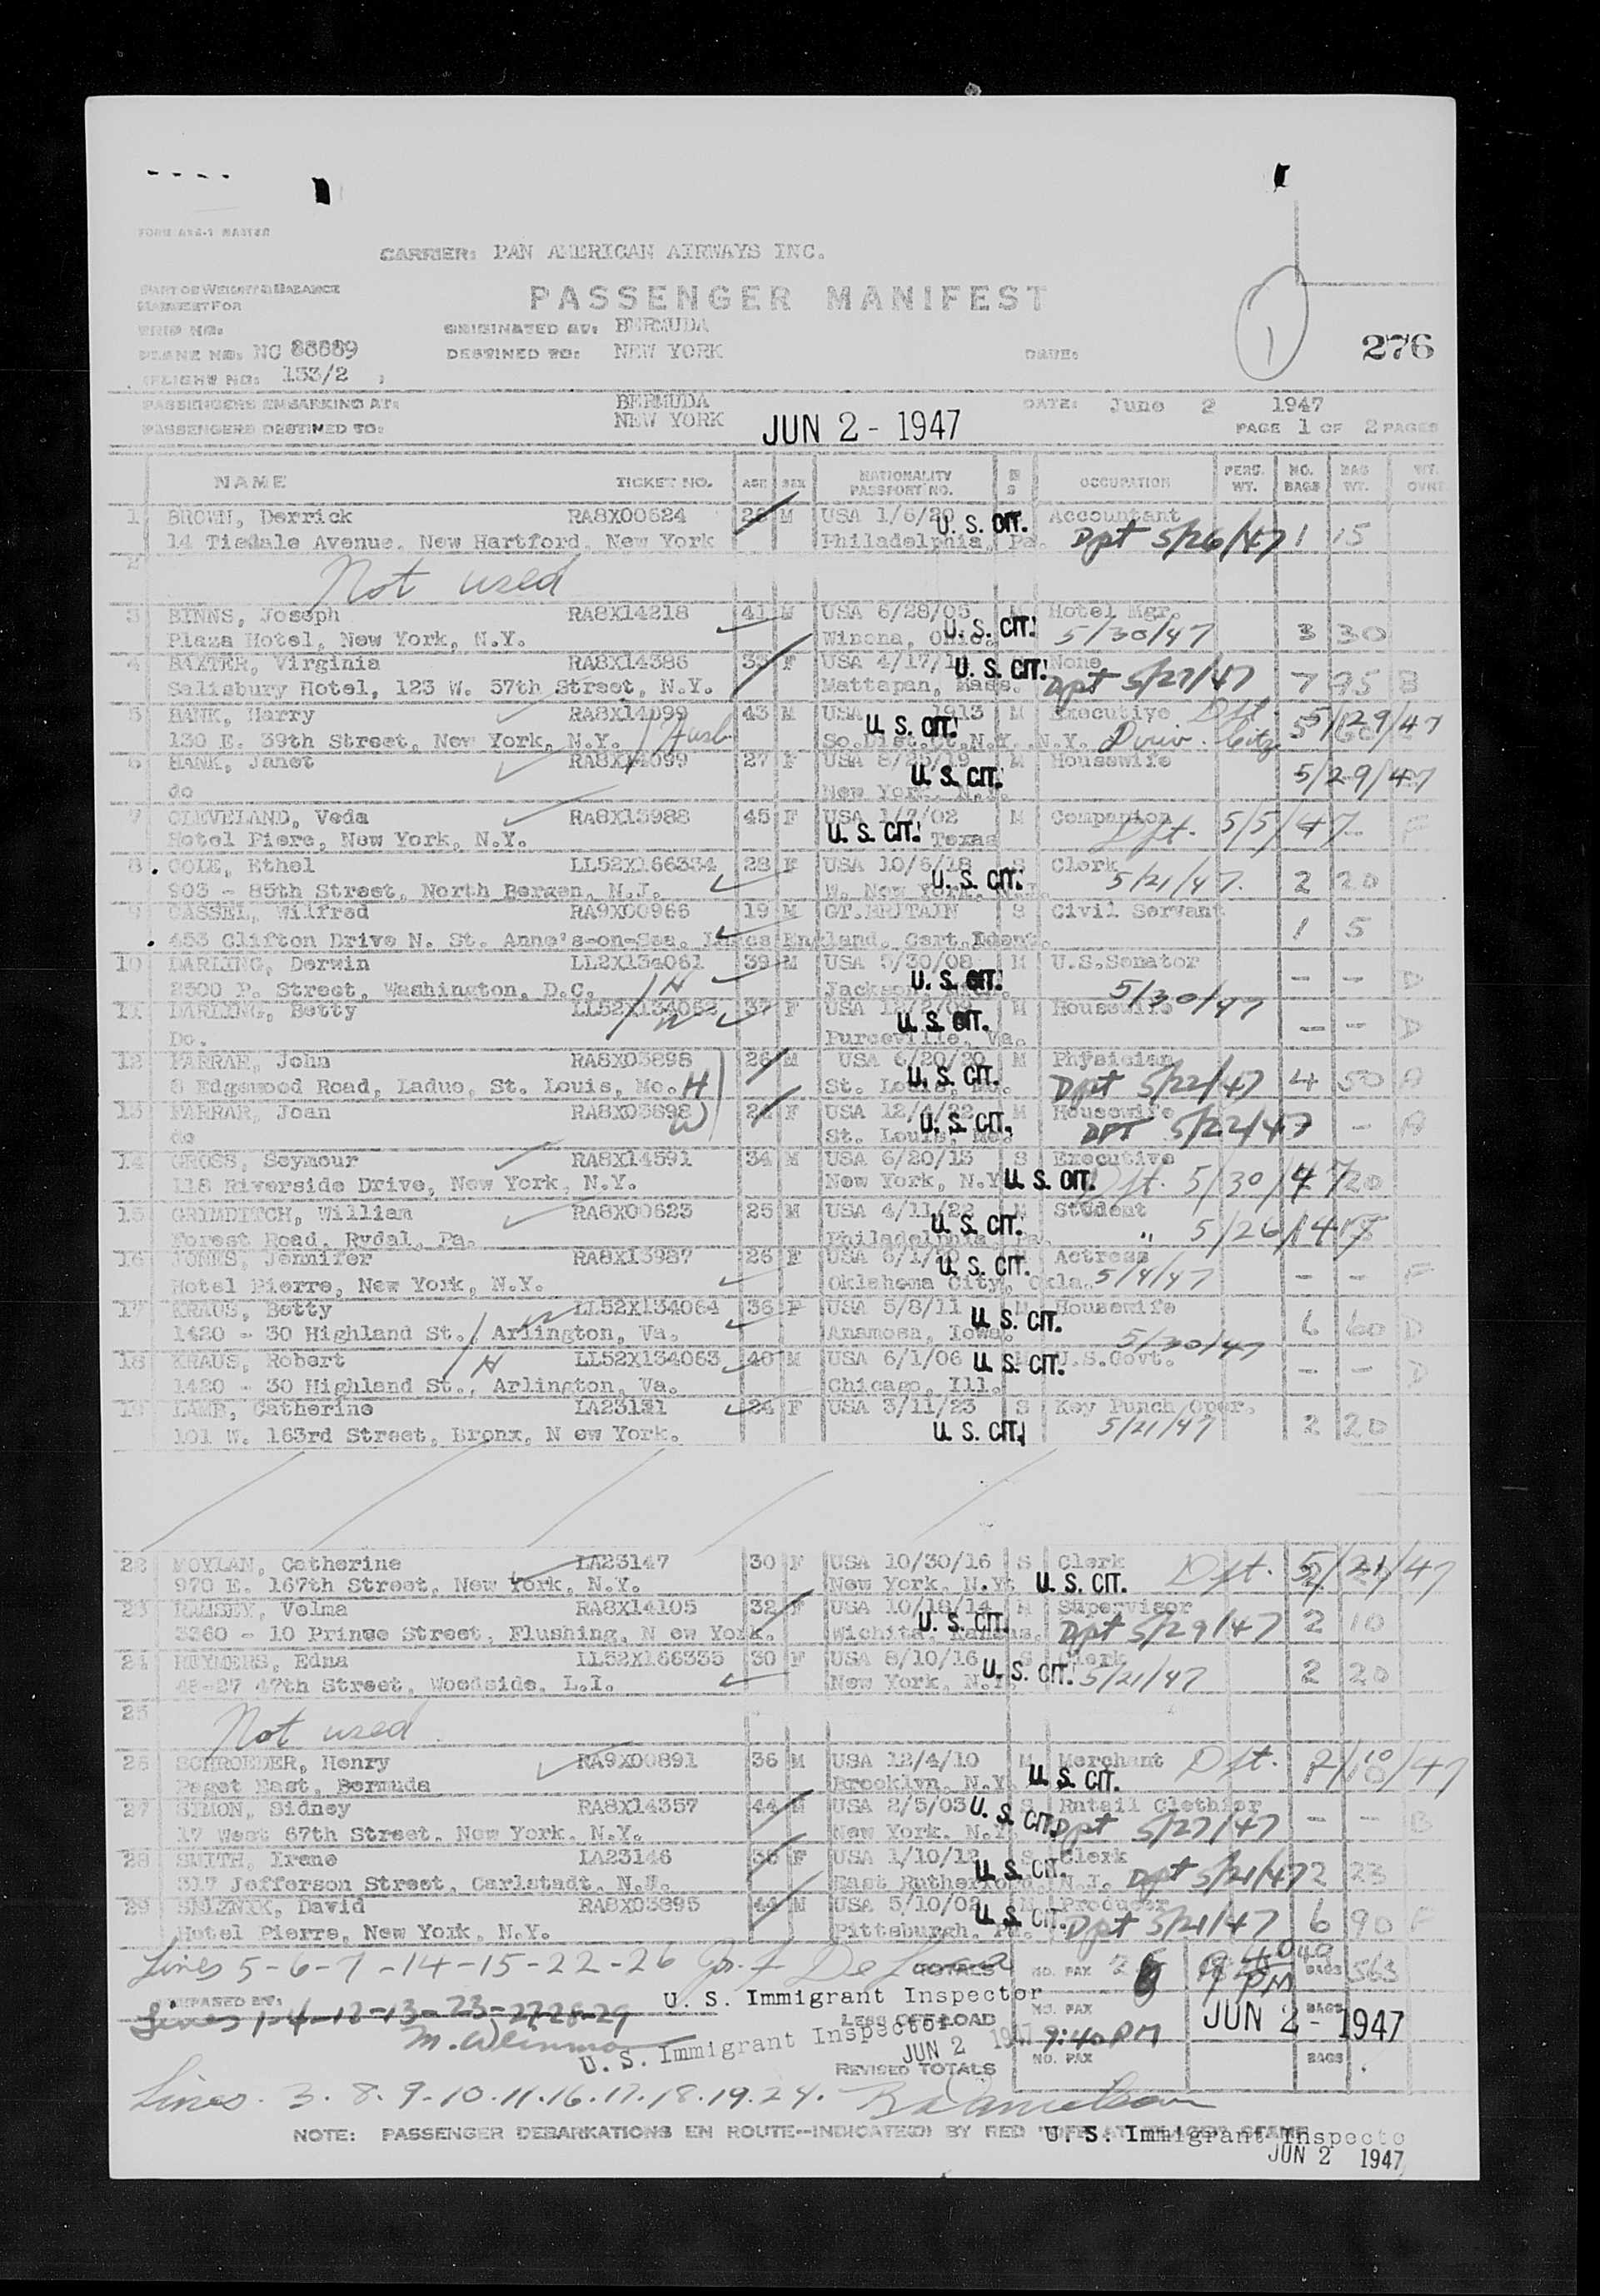 FORM AVS-1 MASTER
CARRIER: PAN AMERICAN AIRWAYS INC.
PART OF WEIGHT & BALANCE
MANIFEST FOR
PASSENGER MANIFEST
1
TRIP NO:
ORIGINATED AT: BERMUDA
276
PLANE NO: NC 88889
DESTINED TO: NEW YORK
DATE:
(FLIGHT NO: 133/2 )
PASSENGERS EMBARKING AT: BERMUDA DATE: June 2 1947
PASSENGERS DESTINED TO: NEW YORK JUN 2 - 1947 PAGE 1 OF 2 PAGES
NAME TICKET NO. AGE SEX NATIONALITY PASSPORT NO. M S OCCUPATION PERS. WT. NO. BAGS BAG WT. WT. OVNT
1 BROWN, Derrick RA8X00624 M USA 1/6/20 U. S. CIT. Accountant
14 Tiedale Avenue, New Hartford, New York Philadelphia, Pa. Dpt 5/26/47 1 15
2 Not used
3 BINNS, Joseph RA8X14218 41 M USA 6/28/05 M Hotel Mgr.
Plaza Hotel, New York, N.Y. Winona, Ohio U. S. CIT. 5/30/47 3 30
4 BAXTER, Virginia RA8X14386 33 F USA 4/17/1 U. S. CIT. None
Salisbury Hotel, 123 W. 57th Street, N.Y. Mattapan, Mass. Dpt 5/27/47 7 95 B
5 HANK, Harry RA8X14099 43 M USA 1913 M Executive Dft. 5/29/47
130 E. 39th Street, New York, N.Y. Husb U. S. CIT. So.Dist.Ct.N.Y. N.Y. Deriv. Citz
6 HANK, Janet RA8X14099 27 F USA 8/25/19 M Housewife
do New York, N.Y. U. S. CIT. 5/29/47
7 CLEVELAND, Veda RA8X13988 45 F USA 1/7/02 M Companion
Hotel Piere, New York, N.Y. U. S. CIT. Texas Dft. 5/5/47 - F
8 COLE, Ethel LL52X166334 28 F USA 10/6/18 S Clerk
903 - 85th Street, North Bergen, N.J. W. New York, N.J. U. S. CIT. 5/21/47 2 20
9 CASSEL, Wilfred RA9X00966 19 M GT.BRITAIN S Civil Servant
453 Clifton Drive N. St. Anne's-on-Sea, Lancs England. Cert.Ident. 1 5
10 DARLING, Derwin LL2X134061 39 M USA 5/30/08 M U.S.Senator
2500 P. Street, Washington, D.C. H Jackson U. S. CIT. 5/30/47 - - D
11 DARLING, Betty LL52X134062 W 37 F USA M Housewife
Do. Purceville, Va. U. S. CIT. - - D
12 FARRAR, John RA8X03898 26 M USA 6/20/20 M Physician
8 Edgewood Road, Laduo, St. Louis, Mo. H St. Louis, Mo. U. S. CIT. Dpt 5/22/47 4 50 A
13 FARRAR, Joan RA8X03898 W F USA 12/4/22 M Housewife
do St. Louis, Mo. U. S. CIT. DPT 5/22/47 - A
14 GROSS, Seymour RA8X14591 34 M USA 6/20/13 S Executive
118 Riverside Drive, New York, N.Y. New York, N.Y. U. S. CIT. Dft. 5/30/47 20
15 GRIMDITCH, William RA8X00623 25 M USA 4/11/22 M Student
Forest Road, Rydal, Pa. Philadelphia, Pa. U. S. CIT. " 5/26/47
16 JONES, Jennifer RA8X13987 26 F USA 6/1/20 Actress
Hotel Pierre, New York, N.Y. Oklahoma City, Okla. U. S. CIT. 5/4/47 - - F
17 KRAUS, Betty W LL52X134064 36 F USA 5/8/11 M Housewife
1420 - 30 Highland St., Arlington, Va. Anamosa, Iowa. U. S. CIT. 5/30/47 6 60 D
18 KRAUS, Robert H LL52X134063 40 M USA 6/1/06 U. S. CIT. U.S.Govt.
1420 - 30 Highland St., Arlington, Va. Chicago, Ill. - - D
19 LAMB, Catherine LA23131 24 F USA 3/11/23 S Key Punch Oper.
101 W. 163rd Street, Bronx, N ew York. U. S. CIT. 5/21/47 2 20
22 MOYLAN, Catherine LA23147 30 F USA 10/30/16 S Clerk
970 E. 167th Street, New York, N.Y. New York, N.Y. U. S. CIT. Dft. 5/21/47
23 RAMSEY, Velma RA8X14105 32 F USA 10/18/14 M Supervisor
3260 - 10 Prince Street, Flushing, N ew York. Wichita, Kansas. U. S. CIT. Dpt 5/29/47 2 10
24 REYMERS, Edna LL52X166335 30 F USA 8/10/16 S Clerk
48-27 47th Street, Woodside, L.I. New York, N.Y. U. S. CIT. 5/21/47 2 20
25 Not used
26 SCHROEDER, Henry RA9X00891 36 M USA 12/4/10 M Merchant
Paget East, Bermuda Brooklyn, N.Y. U. S. CIT. Dft. 2/10/47
27 SIMON, Sidney RA8X14357 44 M USA 2/5/03 S Retail Clothier
17 West 67th Street, New York, N.Y. New York, N.Y. U. S. CIT. Dpt 5/27/47 - - B
28 SMITH, Irene LA23146 35 F USA 1/10/12 S Clerk
317 Jefferson Street, Carlstadt, N.J. East Rutherford, N.J. U. S. CIT. Dpt 5/21/47 2 23
29 SELZNIK, David RA8X03895 44 M USA 5/10/02 M Producer
Hotel Pierre, New York, N.Y. Pittsburgh, Pa. U. S. CIT. Dpt 5/21/47 6 90 F
Lines 5-6-7-14-15-22-26 TOTALS NO. PAX BAGS 563
U. S. Immigrant Inspector
PREPARED BY:
Lines 1-4-12-13-23-27-28-29 LESS OFF LOAD NO. PAX 9:40 PM BAGS
JUN 2 - 1947
U. S. Immigrant Inspector
JUN 2 1947
REVISED TOTALS NO. PAX BAGS
Lines. 3.8.9.10.11.16.17.18.19.24.
NOTE: PASSENGER DEBARKATIONS EN ROUTE--INDICATED BY RED
U. S. Immigrant Inspecto
JUN 2 1947